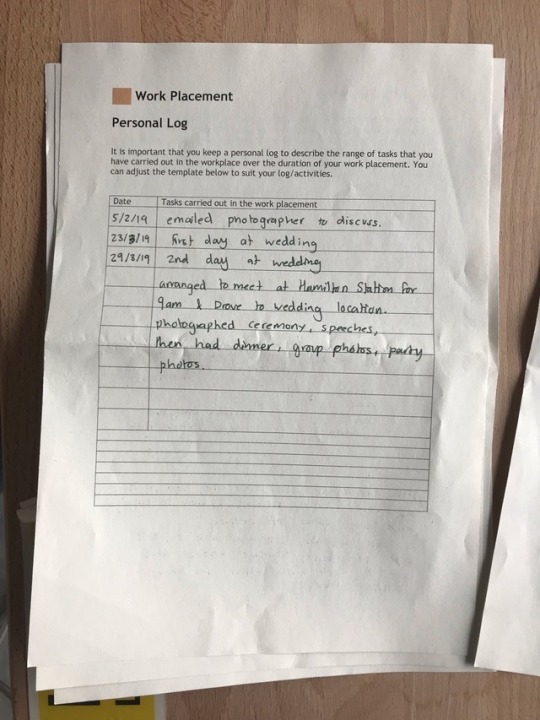 Work Placement
Personal Log
It is important that you keep a personal log to describe the range of tasks that you
have carried out in the workplace over the duration of your work placement. You
can adjust the template below to suit your log/activities.
Date Tasks carried out in the work placement
5/2/19 emailed photographer to discuss.
23/3/19 first day at wedding
29/3/19 2nd day at wedding
arranged to meet at Hamilton Station for
9am & Drove to wedding location.
photographed ceremony, speeches,
then had dinner, group photos, party
photos.